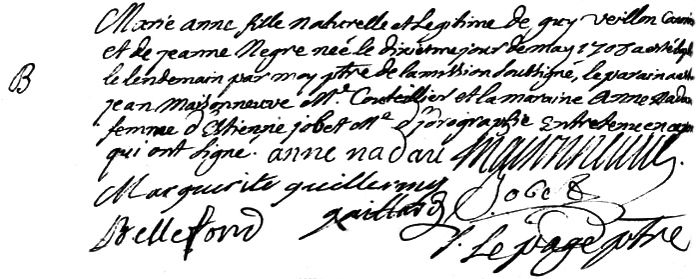 B
Marie anne fille naturelle et Legitime de guy veillon
et de jeanne Negre née le dixiesme jour de may 170 a esté
le lendemain par moy ptre de la mission soussigné, le parain a esté
jean Maisonneuve Me. Coutellier et la maraine Anne nadau
femme d'Estienne jobet Me. d'orographie Entretenu en ce
qui ont signé. anne nadau maisonneuve.
Marguerite guillermy Jobet
Bellefond gaillard Le page ptre